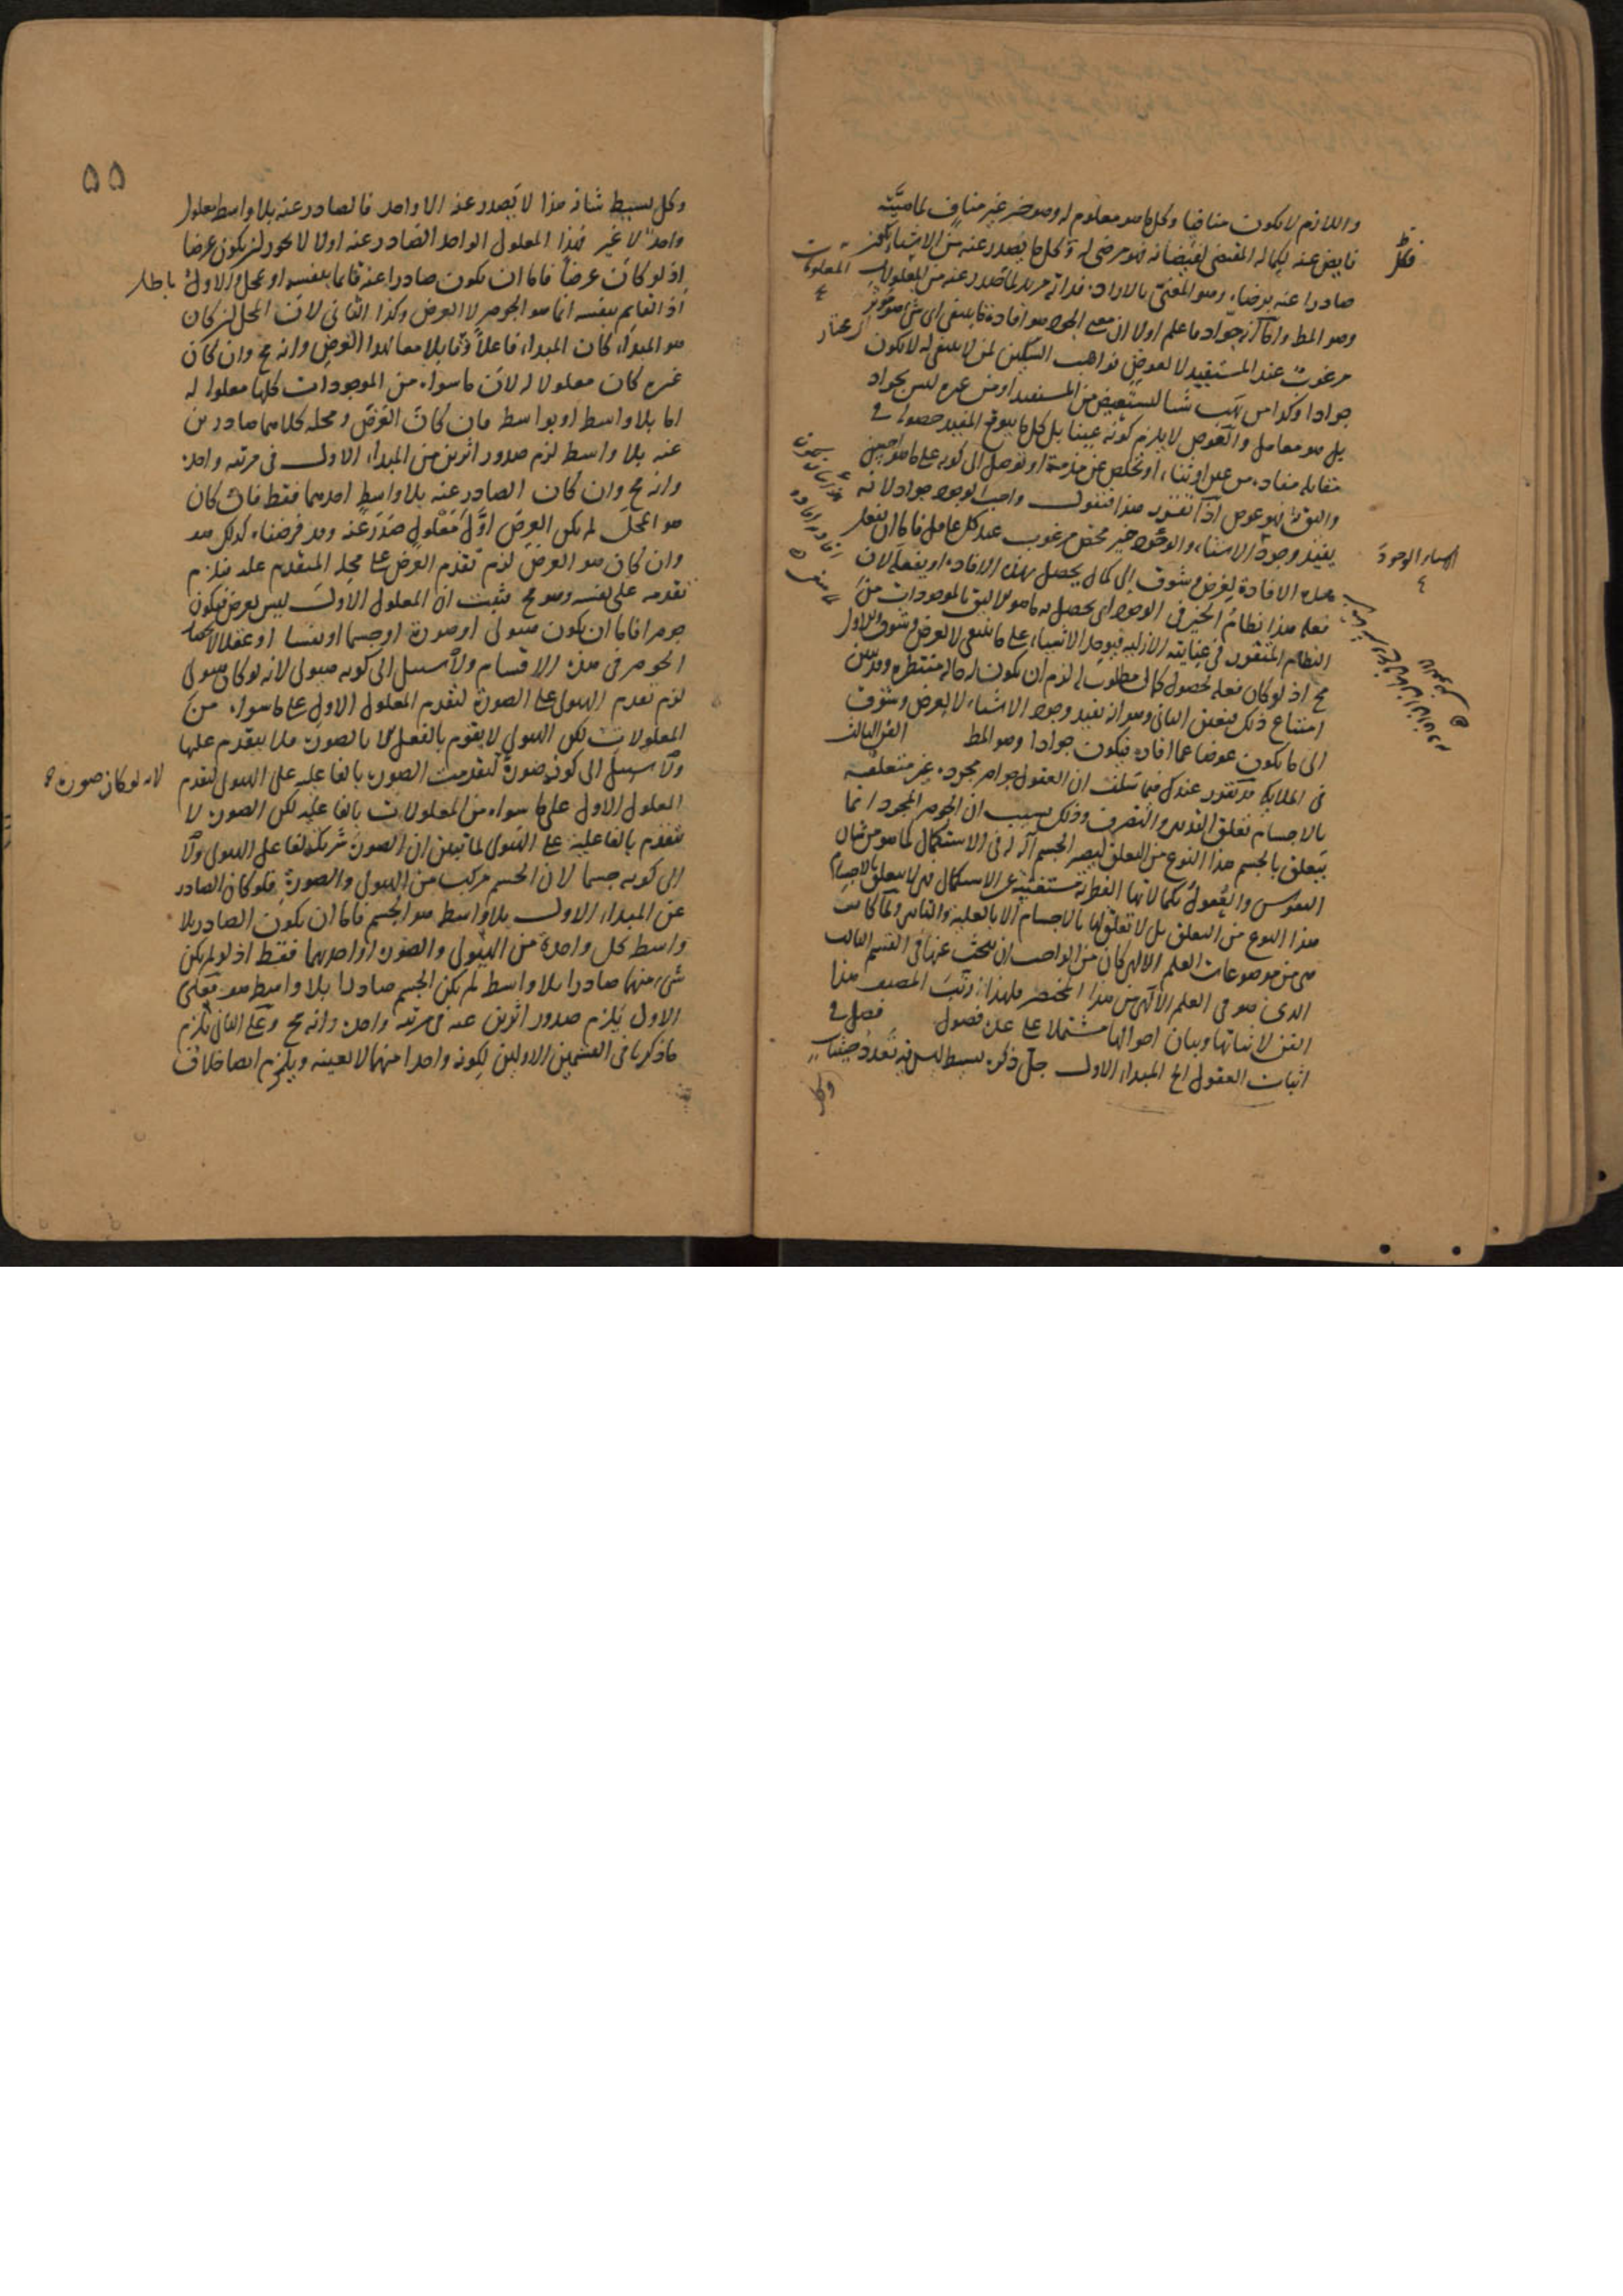 واللازم لا يكون منافيا وكل ما هو معلوم له وهو خير غير مناف لماهيته
فايض عنه لكماله المقتضى لفيضانه فهو مرضى له وكل ما يصدر عنه من الاشياء يكون
صادرا عنه برضاه وهو المعنى بالارادة فذاته مريد لما صدر عنه من المعلولات
وهو المط واما انه جواد فاعلم اولا ان معنى الجود هو افادة ما ينبغى اى شى مؤثر
مرغوب عند المستفيد لا لعوض فواهب السكين لمن لا ينبغى له لا يكون
جوادا وكذا من يهب شيا ليستعيض من المستفيد او من غيره ليس بجواد
بل هو معامل والعوض لا يلزم كونه عينا بل كل ما يتوقع المفيد حصوله فى
مقابلة مفاده من عين او ثناء او تخلص عن مذمة او توصل الى كونه على ما هو احسن
فهو عوض اذا تقرر هذا فنقول واجب الوجود جواد لانه
يفيد وجود الاشياء والوجود خير محض مرغوب عند كل عاقل فاما ان يفعل
هذه الافادة لغرض وشوق الى كمال يحصل بهذه الافادة او يفعله لان
فعله هذا نظام الخير فى الوجود اى يحصل به ما هو لايق بالموجودات من
النظام المتقرر فى عنايته الازلية فيوجد الاشياء على ما ينبغى لا لغرض وشوق والاول
مح اذ لو كان فعله لحصول كمال مطلوب له لزم ان يكون له حالة منتظرة وقد تبين
امتناع ذلك فتعين الثانى وهو انه يفيد وجود الاشياء لا لغرض وشوق
الى ما يكون عوضا عما افاده فيكون جوادا وهو المط الفن الثالث
فى الملايكة قد تقرر عندك فيما سلف ان العقول جواهر مجردة غير متعلقة
بالاجسام تعلق التدبير والتصرف وذلك بسبب ان الجوهر المجرد انما
يتعلق بالجسم هذا النوع من التعلق ليصير الجسم آلة له فى الاستكمال كما هو من شان
النفوس والعقول بكمالاتها الفطرية مستغنية عن الاستكمال فهى لا يتعلق بالاجسام
هذا النوع من التعلق بل لا تعلق لها بالاجسام الا بالعلية والتاثير ولما كانت
هى من موضوعات العلم الالهى كان من الواجب ان يبحث عنها فى القسم الثالث
الذى هو فى العلم الالهى من هذا المختصر فلهذا رتب المصنف هذا
الفن لاثباتها وبيان احوالها مشتملا على عدة فصول فصل فى
اثبات العقول الخ المبداء الاول جل ذكره بسيط ليس فيه تعدد حيثيات
وكل
المعلولات
لانه لو كان صورة
باطل
٥٥
وكل بسيط شانه هذا لا يصدر عنه الا واحد فالصادر عنه بلا واسطة معلول
واحد لا غير فهذا المعلول الواحد الصادر عنه اولا لا يجوز ان يكون عرضا
اذ لو كان عرضا فاما ان يكون صادرا عنه قايما بنفسه او بمحل والاول
اذ القايم بنفسه انما هو الجوهر لا العرض وكذا الثانى لان المحل ان كان
هو المبداء كان المبداء فاعلا وقابلا معا لهذا العرض وانه مح وان كان
غيره كان معلولا له لان ما سواه من الموجودات كلها معلولة له
اما بلا واسطة او بواسطة فان كان العرض ومحله كلاهما صادرين
عنه بلا واسطة لزم صدور اثرين من المبداء الاول فى مرتبة واحدة
وانه مح وان كان الصادر عنه بلا واسطة احدهما فقط فان كان
هو المحل لم يكن العرض اول معلول صدر عنه وقد فرضناه كذلك هف
وان كان هو العرض لزم تقدم العرض على محله المتقدم عليه فيلزم
تقدمه على نفسه وهو مح فثبت ان المعلول الاول ليس بعرض فيكون
جوهرا فاما ان يكون هيولى او صورة او جسما او نفسا او عقلا لانحصار
الجوهر فى هذه الاقسام ولا سبيل الى كونه هيولى لانه لو كان هيولى
لزم تقدم الهيولى على الصورة لتقدم المعلول الاول على ما سواه من
المعلولات لكن الهيولى لا يقوم بالفعل الا بالصورة فلا يتقدم عليها
ولا سبيل الى كونه صورة لتقدمت الصورة بالفاعلية على الهيولى لتقدم
المعلول الاول على ما سواه من المعلولات بالفاعلية لكن الصورة لا
تتقدم بالفاعلية على الهيولى لما تبين ان الصورة شريكة لفاعل الهيولى ولا
الى كونه جسما لان الجسم مركب من الهيولى والصورة فلو كان الصادر
عن المبداء الاول بلا واسطة هو الجسم فاما ان يكون الصادر بلا
واسطة كل واحدة من الهيولى والصورة او احديهما فقط اذ لو لم يكن
شىء منهما صادرا بلا واسطة لم يكن الجسم صادرا بلا واسطة هف فعلى
الاول يلزم صدور اثرين عنه فى مرتبة واحدة وانه مح وعلى الثانى يلزم
ما ذكرنا فى القسمين الاولين لكونه واحدا منهما لا بعينه ويلزم ايضا خلاف